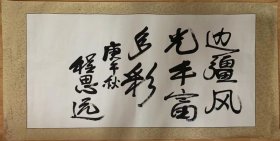 边疆风
光丰富
多彩
庚午秋
程思远